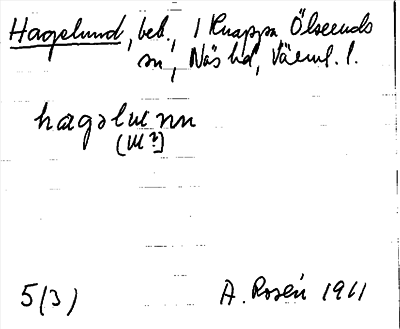 Hagelund, beb., i Knappa Ölseruds
sn, Näs hd, Värml. l.
hagəlɯnn
(ɯ?)
5(3)
A. Rosén 1911